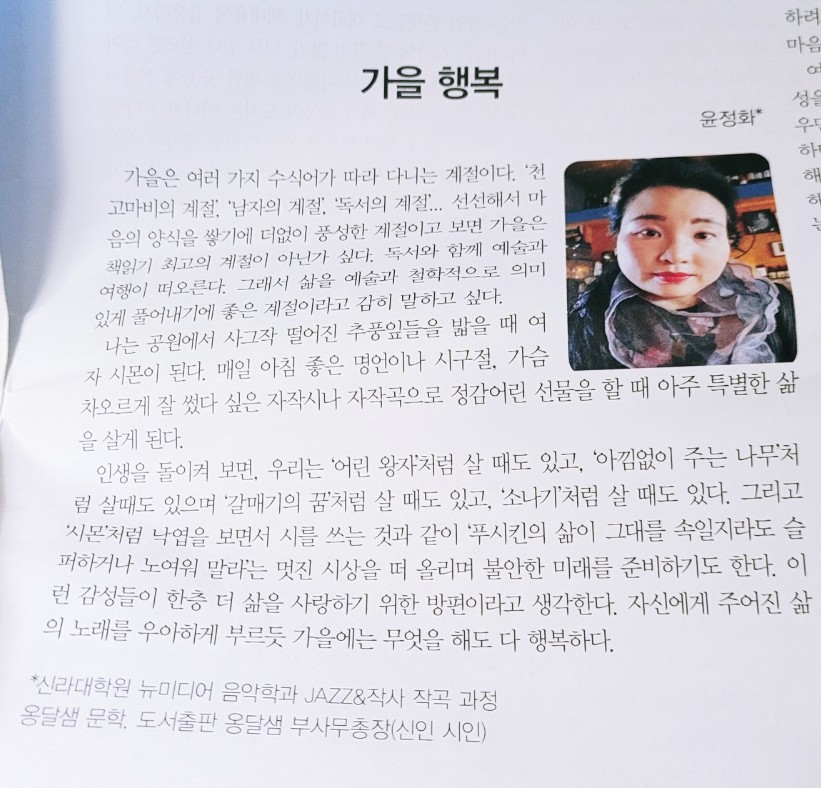 가을 행복
윤정화*
가을은 여러 가지 수식어가 따라 다니는 계절이다. '천
고마비의 계절', '남자의 계절', '독서의 계절'... 선선해서 마
음의 양식을 쌓기에 더없이 풍성한 계절이고 보면 가을은
책읽기 최고의 계절이 아닌가 싶다. 독서와 함께 예술과
여행이 떠오른다. 그래서 삶을 예술과 철학적으로 의미
있게 풀어내기에 좋은 계절이라고 감히 말하고 싶다.
나는 공원에서 사그작 떨어진 추풍잎들을 밟을 때 여
자 시몬이 된다. 매일 아침 좋은 명언이나 시구절, 가슴
차오르게 잘 썼다 싶은 자작시나 자작곡으로 정감어린 선물을 할 때 아주 특별한 삶
을 살게 된다.
인생을 돌이켜 보면, 우리는 '어린 왕자'처럼 살 때도 있고, '아낌없이 주는 나무'처
럼 살때도 있으며 '갈매기의 꿈'처럼 살 때도 있고, '소나기'처럼 살 때도 있다. 그리고
'시몬'처럼 낙엽을 보면서 시를 쓰는 것과 같이 '푸시킨의 삶이 그대를 속일지라도 슬
퍼하거나 노여워 말라'는 멋진 시상을 떠 올리며 불안한 미래를 준비하기도 한다. 이
런 감성들이 한층 더 삶을 사랑하기 위한 방편이라고 생각한다. 자신에게 주어진 삶
의 노래를 우아하게 부르듯 가을에는 무엇을 해도 다 행복하다.
*신라대학원 뉴미디어 음악학과 JAZZ&작사 작곡 과정
옹달샘 문학, 도서출판 옹달샘 부사무총장(신인 시인)
하려
마음
여
성을
우단
하며
해
하
는